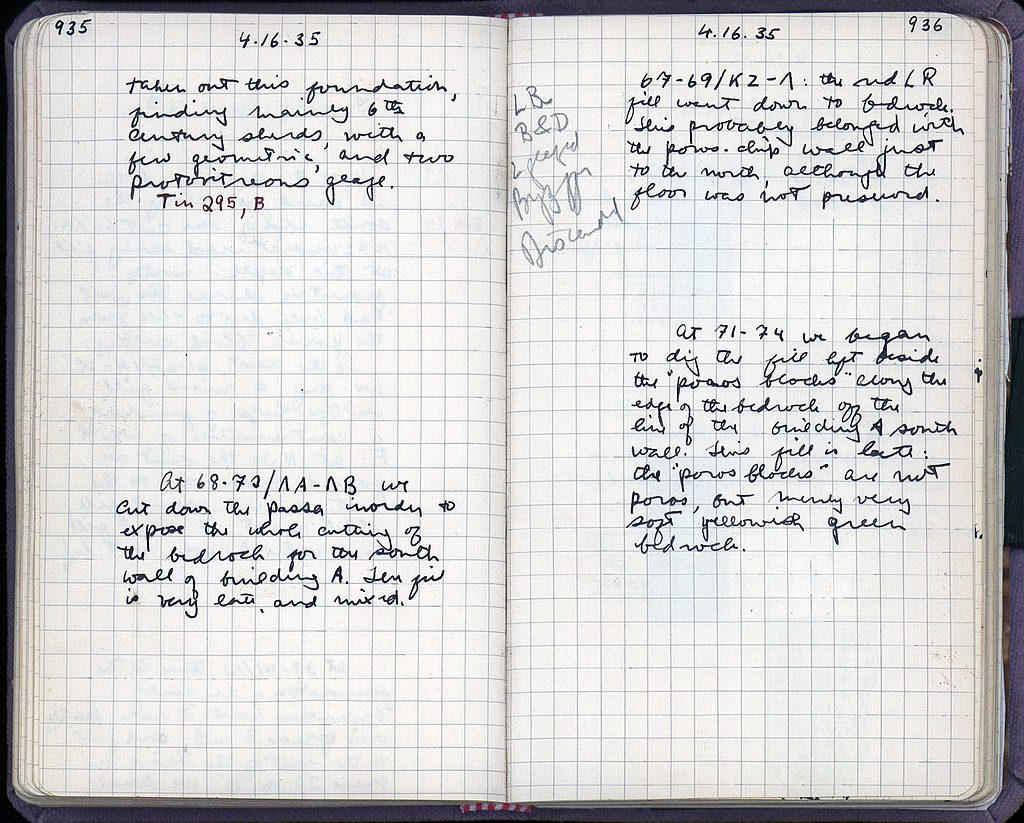 935
4.16.35
taken out this foundation,
finding mainly 6th
century sherds, with a
few geometric, and two
protovitreous glaze.
Tin 295, B
At 68-73/ΛA-ΛB we
cut down the passa inordy to
expose the whole cutting of
the bedrock for the south
wall of building A. This fill
is very late, and mixed.
936
4.16.35
67-69/KZ-Λ: the red LR
fill went down to bedrock.
This probably belonged with
the poros-chip wall just
to the north, although the
floor was not preserved.
LR
B&D
Discarded
At 71-74 we began
to dig the fill left beside
the "poros blocks" along the
edge of the bedrock off the
line of the building A south
wall. This fill is late:
the "poros blocks" are not
poros, but merely very
soft yellowish green
bedrock.